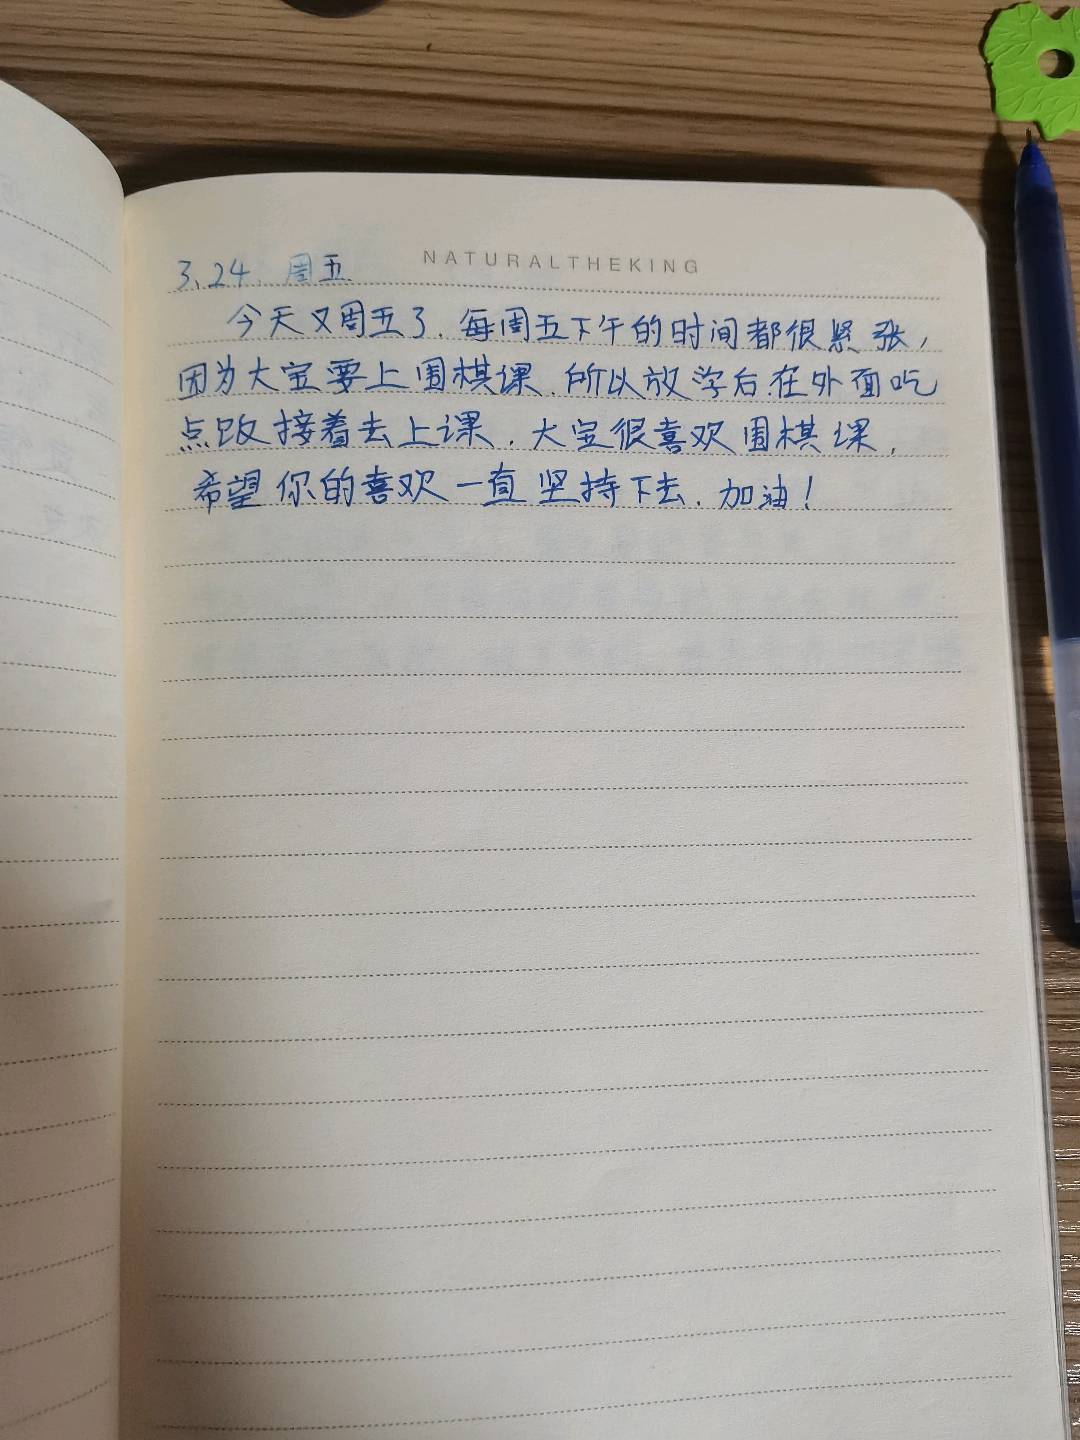 NATURALTHEKING
3.24. 周五.
今天又周五了.每周五下午的时间都很紧张,
因为大宝要上围棋课.所以放学后.在外面吃
点饭接着去上课.大宝很喜欢围棋课,
希望你的喜欢一直坚持下去.加油!